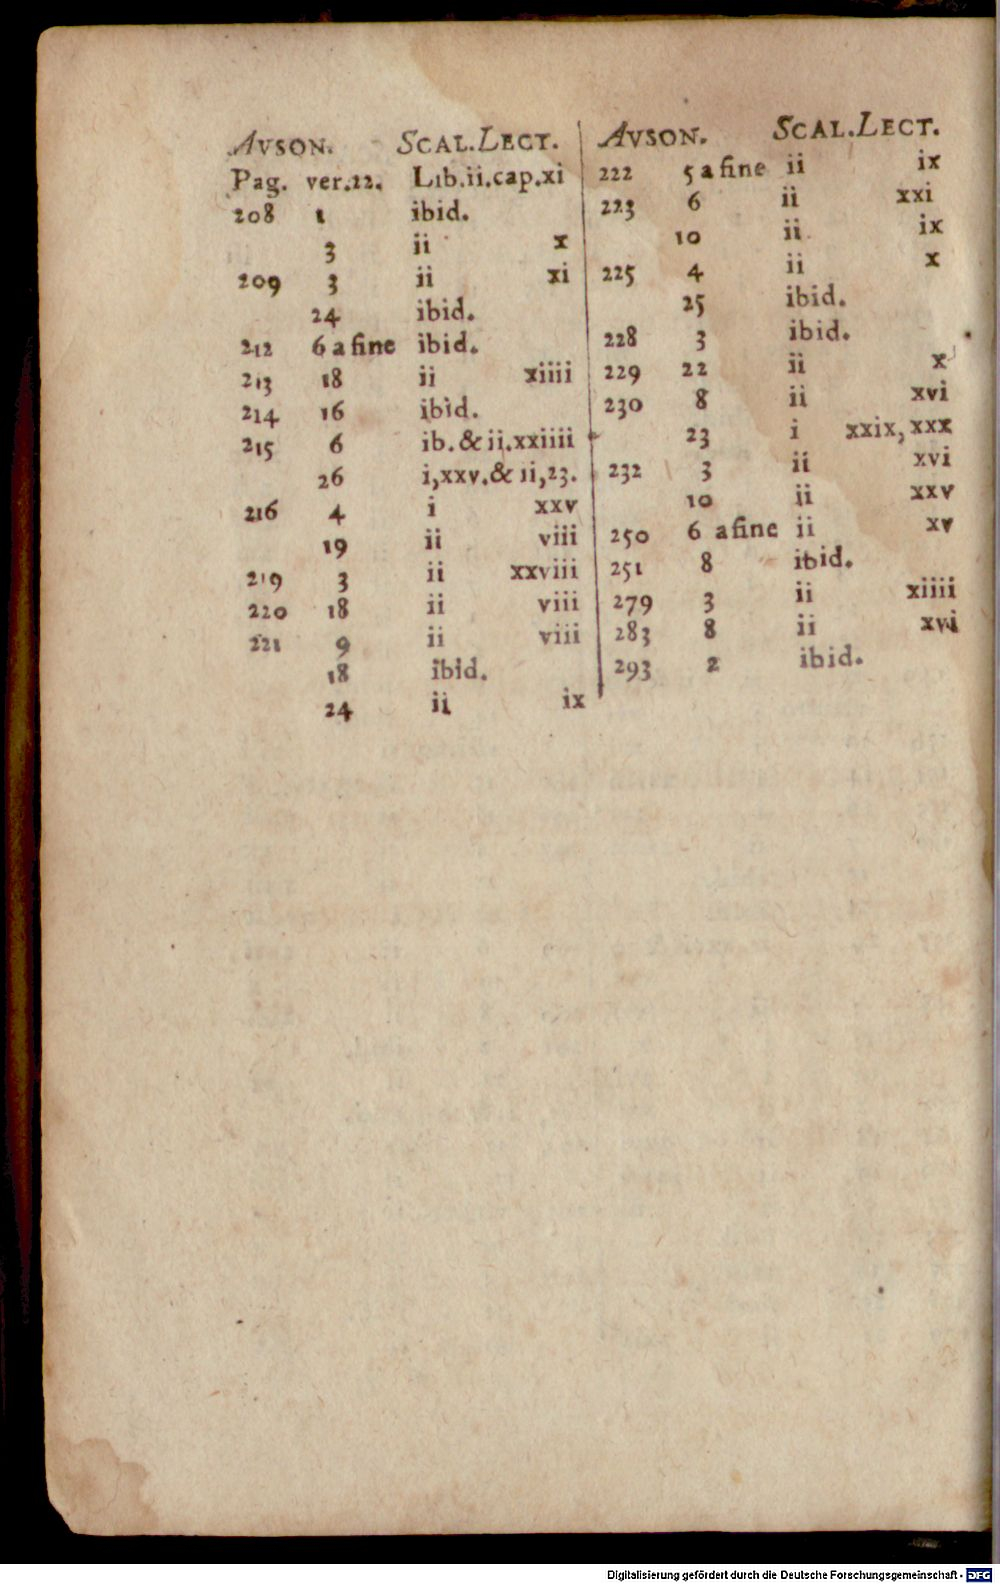 AVSON. SCAL.LECT.
Pag. ver.12. Lib.ii.cap.xi
208 1 ibid.
3 ii x
209 3 ii xi
24 ibid.
212 6 a fine ibid.
213 18 ii xiiii
214 16 ibid.
215 6 ib.&ii.xxiiii
26 i,xxv.&ii,23.
216 4 i xxv
19 ii viii
219 3 ii xxviii
220 18 ii viii
221 9 ii viii
18 ibid.
24 ii ix
AVSON. SCAL.LECT.
222 5 a fine ii ix
223 6 ii xxi
10 ii ix
225 4 ii x
25 ibid.
228 3 ibid.
229 22 ii x
230 8 ii xvi
23 i xxix,xxx
232 3 ii xvi
10 ii xxv
250 6 a fine ii xv
251 8 ibid.
279 3 ii xiiii
283 8 ii xvi
293 2 ibid.
Digitalisierung gefördert durch die Deutsche Forschungsgemeinschaft - DFG